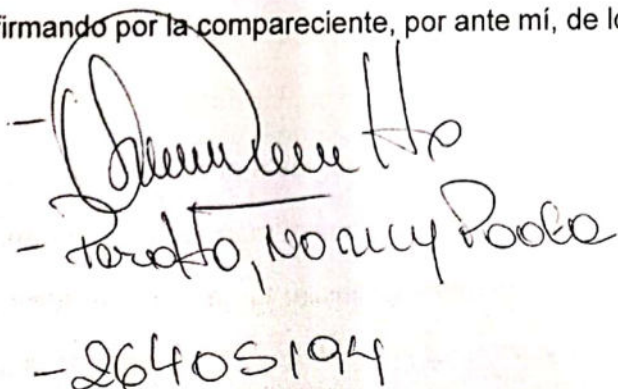 firmando por la compareciente, por ante mí, de lo
-
- Peratto, Nancy Paola
- 26405194